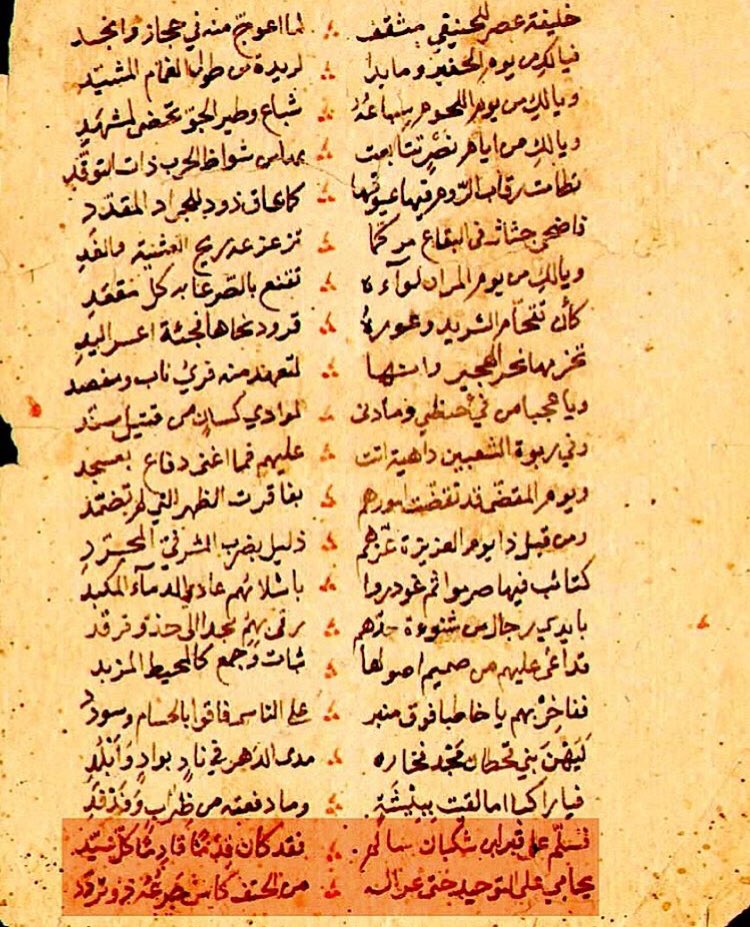 خليفة عصر للحنيفي مثقف لما اعوج منه في حجاز وانجد
فيالك من يوم الحفير وما بدا لريدة من طول الغمام المشيد
ويالك من يوم اللحوم سباعه شباع وطير الجو تحضى لمشهد
ويالك من ايام نصر تتابعت شواظ الحرب ذات التوقد
رقاب الروم كما عاق ذود للجراد المقدد
فاضحى في البقاع تزعزعه ريح العشية والغد
ويالك من يوم المران لوآءه تقنع بالصرعا به كل مقعد
كأن الشريد وعوره قرود نحاها اعسر اليد
نحر الهجير ناب ومفصد
ويا عجبا من في حنظي وما دنى لموادي كسان من قتيل مسند
وفي ربوة الشعبين داهية اتت عليهم فما اغنى دفاع بعسجد
ويوم المقضى قد تقضت امورهم بفاقرت الظهر التي لم تضمد
ومن قبل ذا يوم العزيزة عزهم ذليل بضرب المشرفي المجرد
كتائب فيها صرموا ثم غودروا باشلائهم عادي الدمآء المكبد
بايدي رجال من شنوءة جدهم رقى بهم مجدا الى حذو فرقد
تداعى عليهم من صميم اصولها ثبات وجمع كالمحيط المزبد
ففاخر بهم يا خاطبا فوق منبر على الناس فاقوا بالحسام وسودد
ليهن بني قحطان مجد فخاره مدى الدهر في ناد بواد وابلد
فيا راكبا اما لقيت ببيشة وما دفعته من ظراب وفدفد
فسلم على قبر ابن شكبان سالم فقد كان قدما قادما كل سيد
يحامي على التوحيد حتى من الحتف كاس جرعه ذو تردد